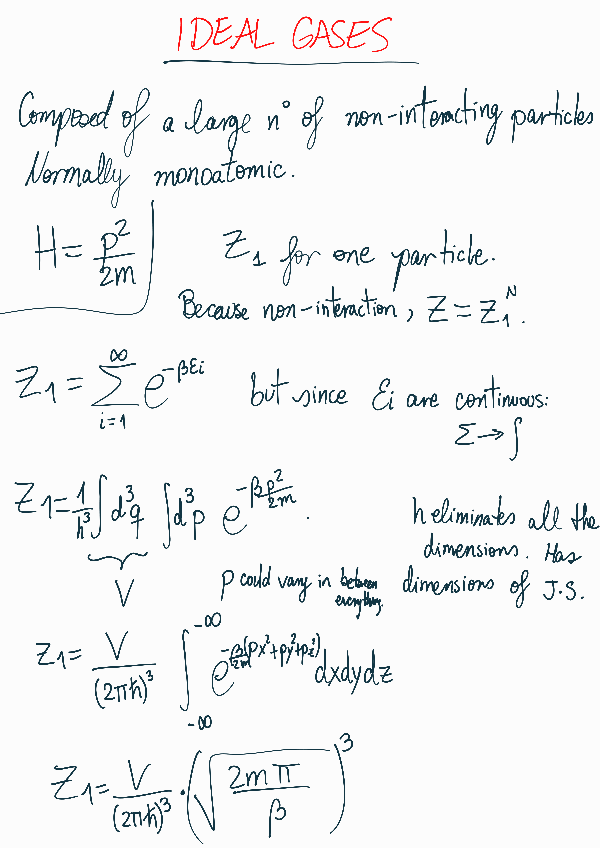 IDEAL GASES
Composed of a large nº of non-interacting particles
Normally monoatomic.
H = p²/2m
Z₁ for one particle.
Because non-interaction, Z = Z₁ᴺ.
Z₁ = ∑_{i=1}^{∞} e^{-βεi} but since εi are continuous:
Σ → ∫
Z₁ = 1/h³ ∫ d³q ∫ d³p e^{-βp²/2m}.
h eliminates all the
dimensions. Has
dimensions of J·S.
V
p could vary in between
everything.
Z₁ = V/(2πħ)³ ∫_{-∞}^{-∞} e^{-β/2m(px²+py²+pz²)} dxdydz
Z₁ = V/(2πħ)³ · (√(2mπ/β))³